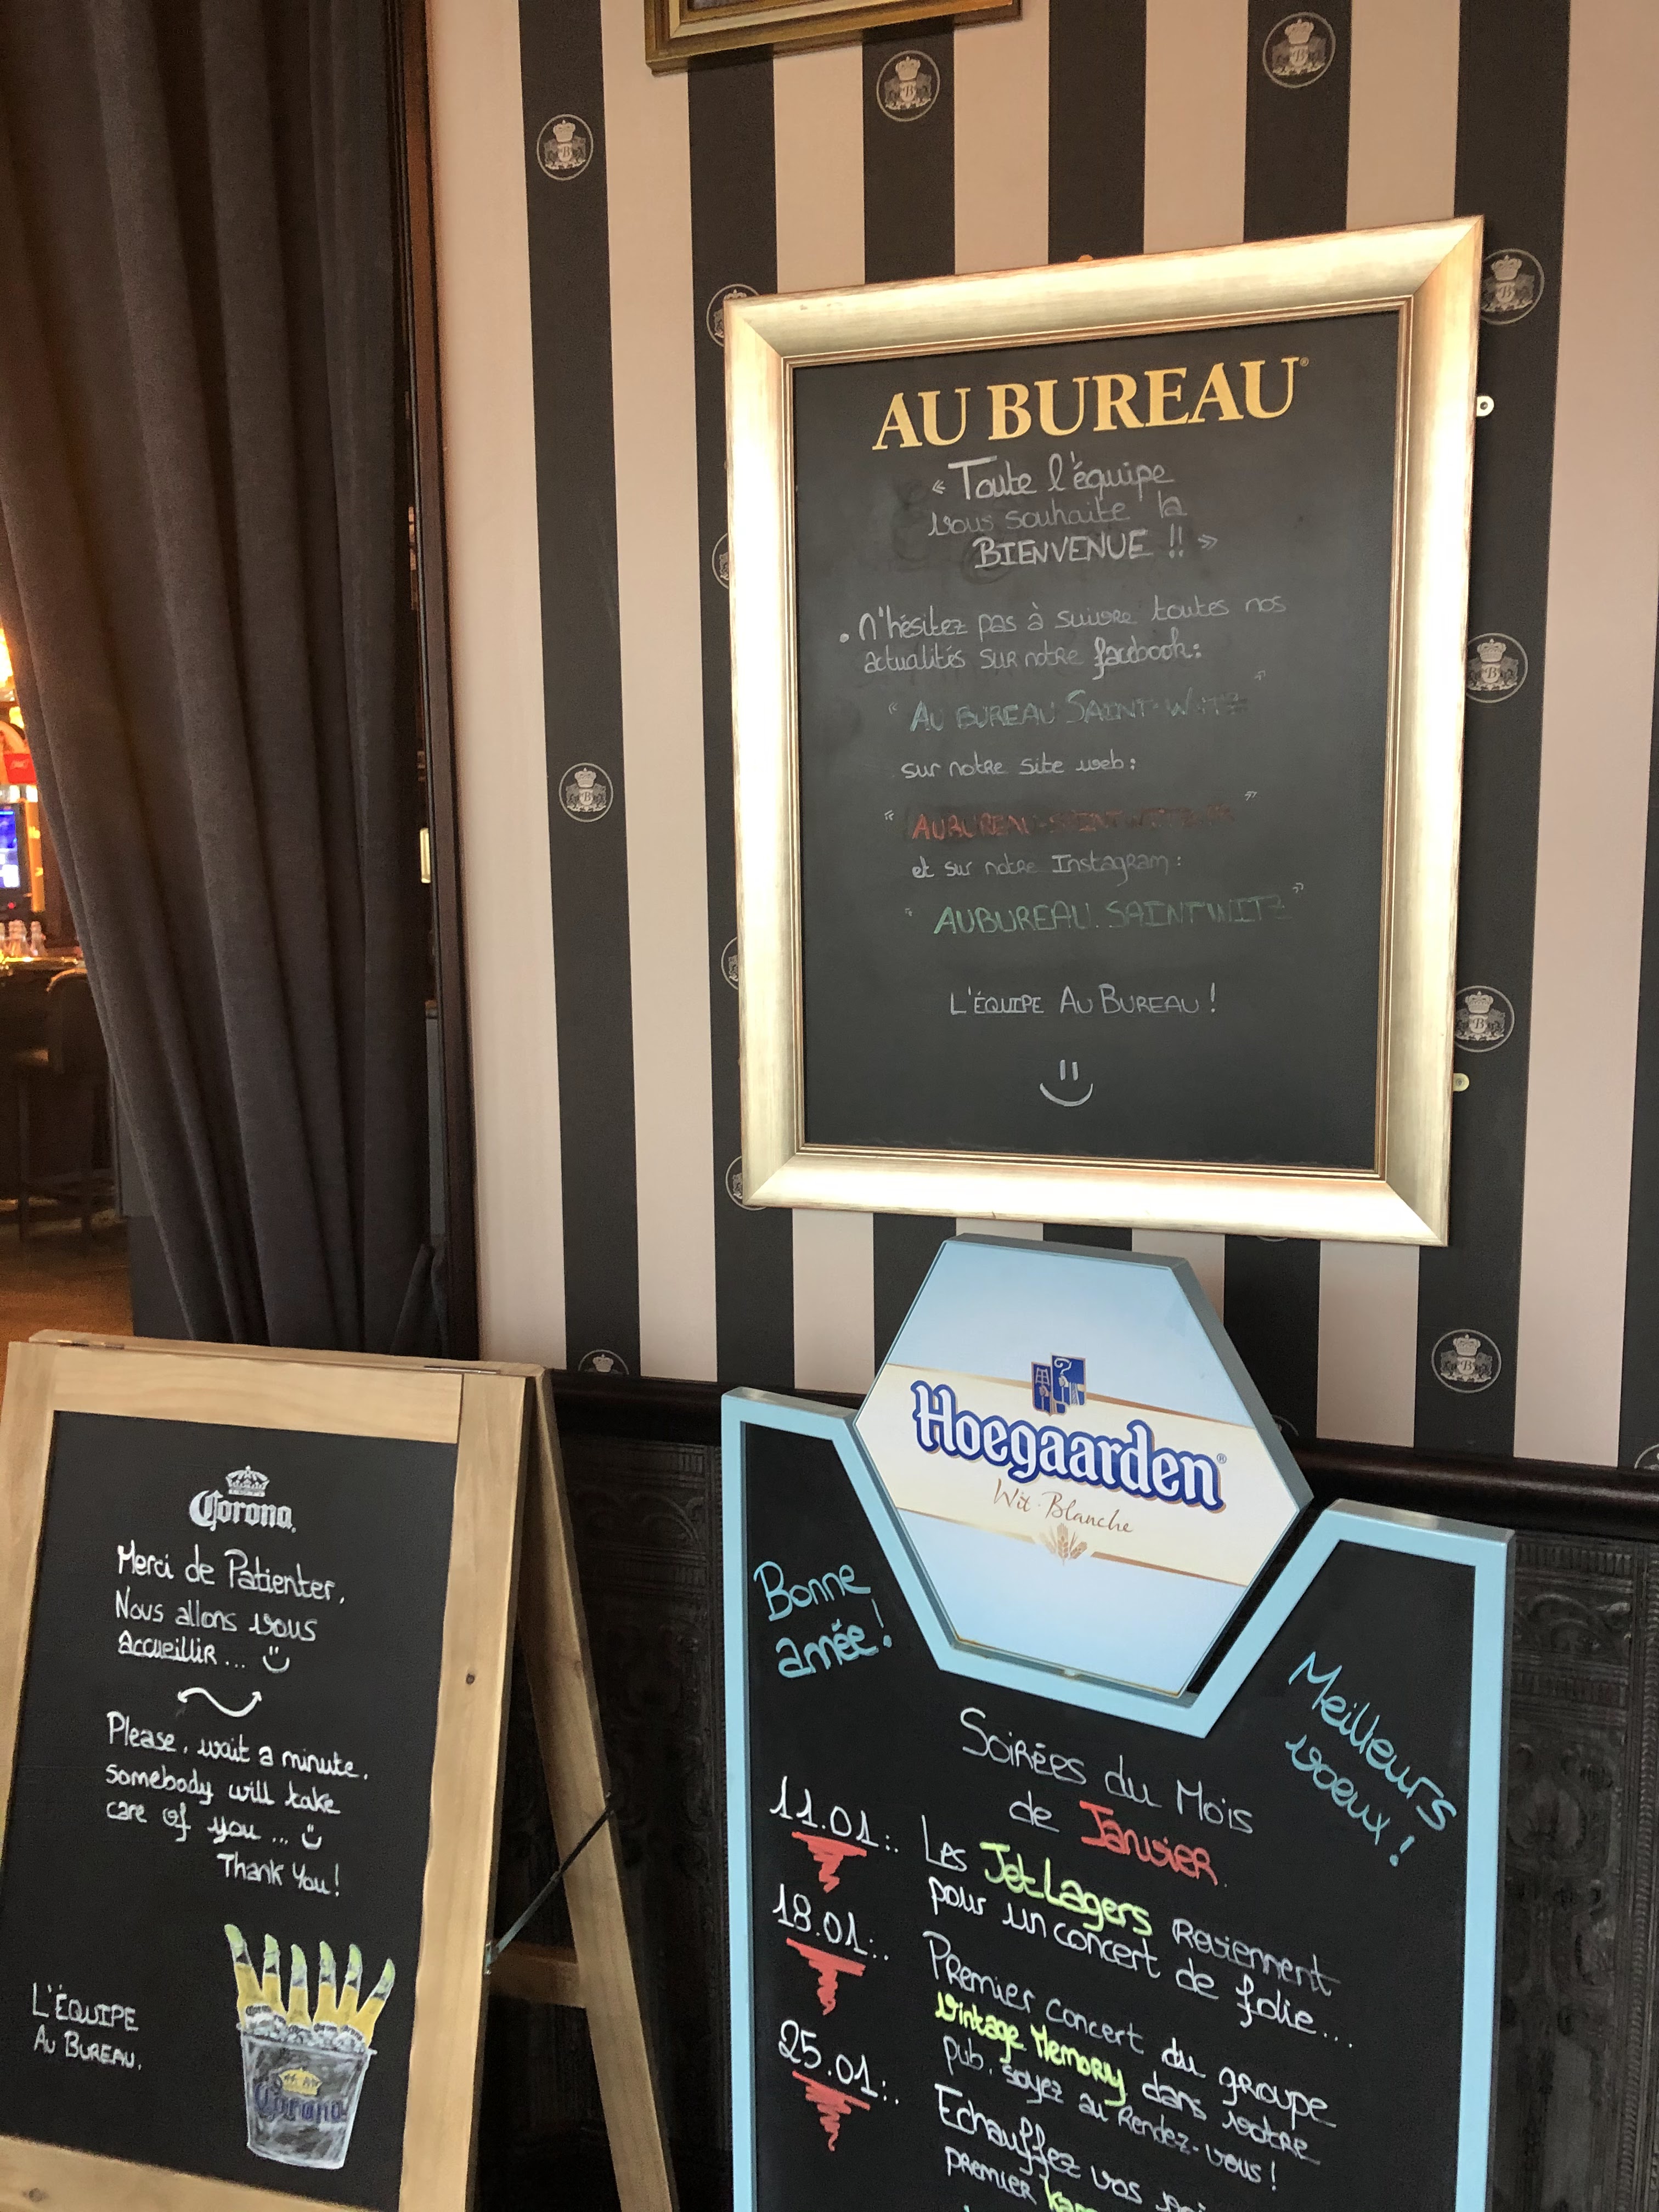 AU BUREAU®
« Toute l'équipe
vous souhaite la
BIENVENUE !! »
. N'hésitez pas à suivre toutes nos
actualités sur notre facebook:
" AU BUREAU SAINT-WITZ "
sur notre site web:
" AUBUREAU-SAINTWITZ "
et sur notre Instagram:
" AUBUREAU.SAINTWITZ "
L'ÉQUIPE AU BUREAU !
Corona.
Merci de Patienter,
Nous allons vous
accueillir...
Please, wait a minute.
somebody will take
care of you...
Thank You!
L'ÉQUIPE
AU BUREAU.
Corona
Hoegaarden®
Wit-Blanche
Bonne
année!
Meilleurs
voeux!
Soirées du Mois
de Janvier.
11.01: Les JetLagers reviennent
pour un concert de folie...
18.01: Premier concert du groupe
Vintage Memory dans votre
pub. soyez au Rendez-vous!
25.01: Echauffez vos
premier